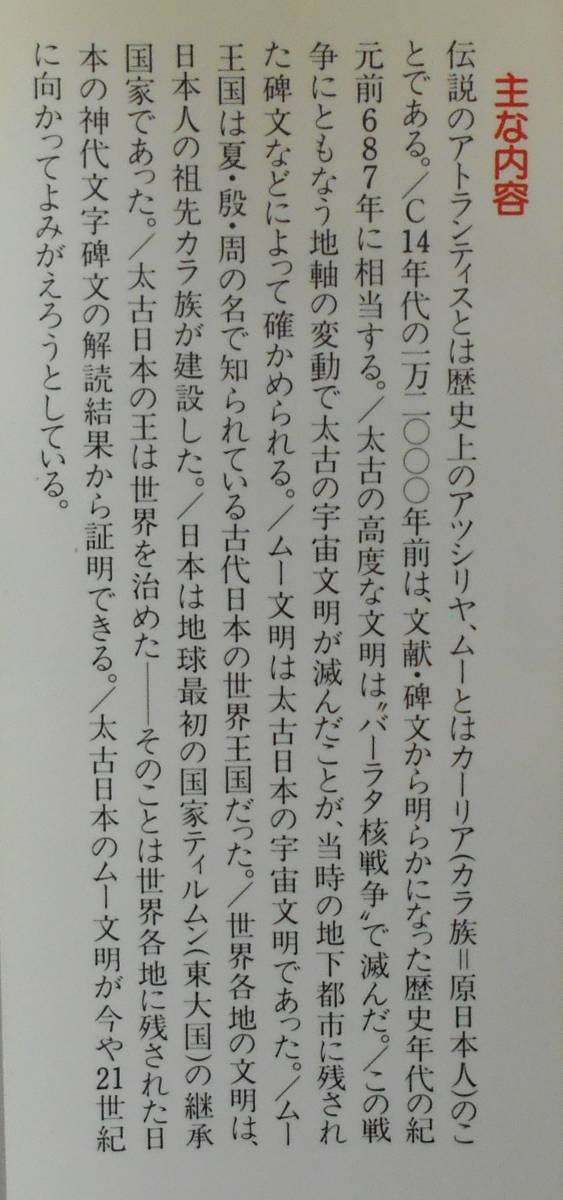 主な内容
伝説のアトランティスとは歴史上のアツシリヤ、ムーとはカーリア(カラ族＝原日本人)のこ
とである。/C14年代の一万二〇〇〇年前は、文献・碑文から明らかになった歴史年代の紀
元前687年に相当する。/太古の高度な文明は〝バーラタ核戦争〟で滅んだ。/この戦
争にともなう地軸の変動で太古の宇宙文明が滅んだことが、当時の地下都市に残され
た碑文などによって確かめられる。/ムー文明は太古日本の宇宙文明であった。/ムー
王国は夏・殷・周の名で知られている古代日本の世界王国だった。/世界各地の文明は、
日本人の祖先カラ族が建設した。/日本は地球最初の国家ティルムン(東大国)の継承
国家であった。/太古日本の王は世界を治めた――そのことは世界各地に残された日
本の神代文字碑文の解読結果から証明できる。/太古日本のムー文明が今や21世紀
に向かってよみがえろうとしている。